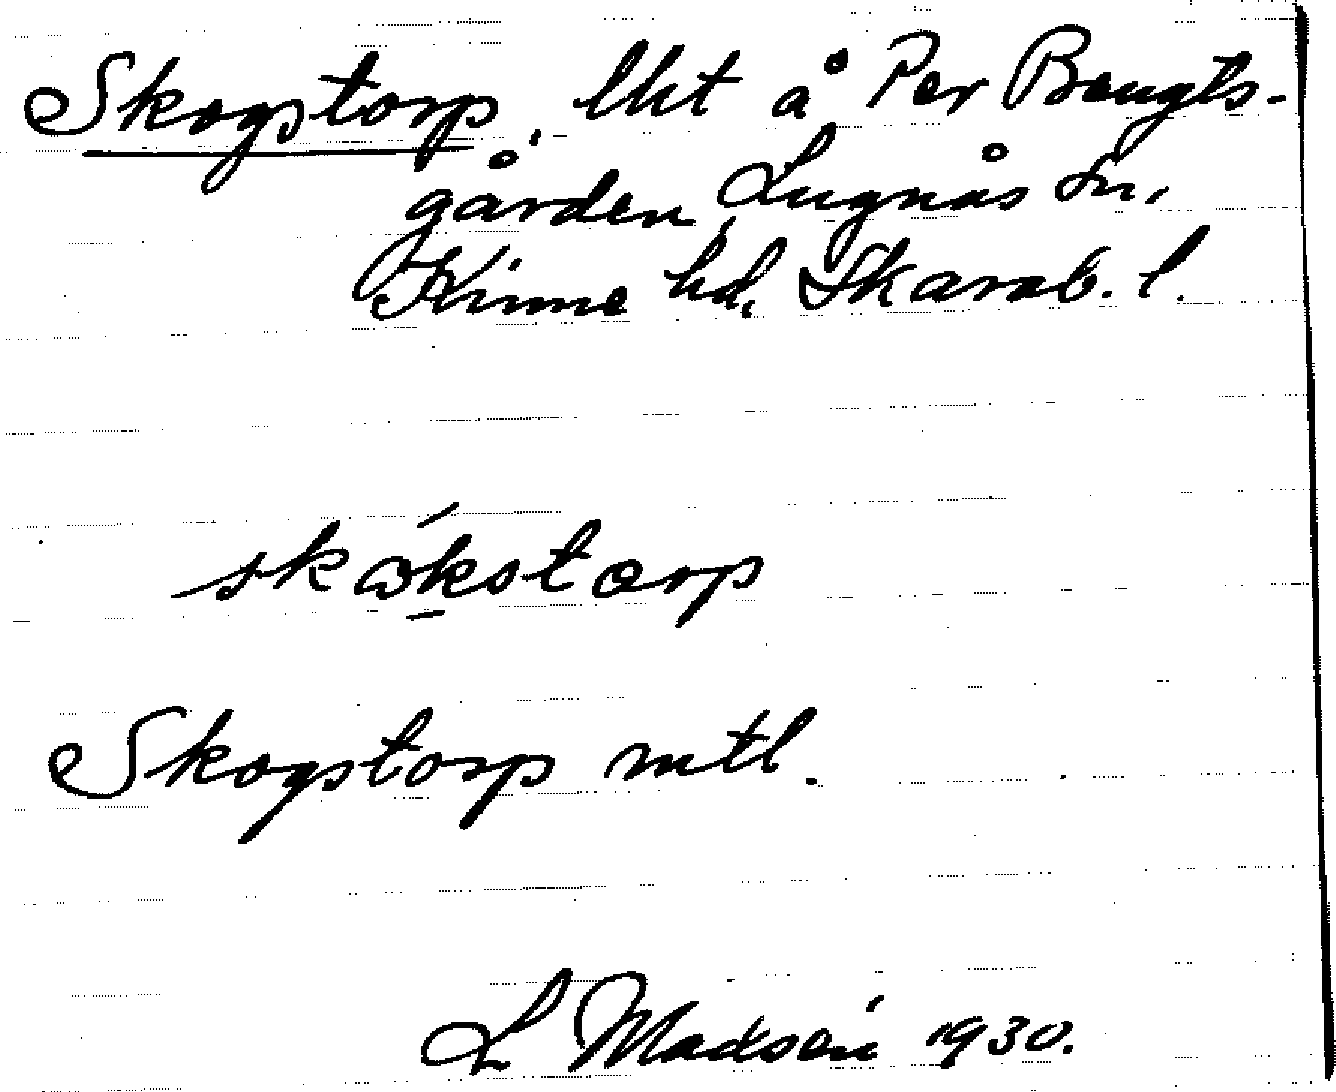 Skogstorp, lht å Per Bengts-
gården, Lugnås sn,
Kinne hd, Skarab. l.
skωkstorp
Skogstorp mtl.
L Madsén 1930.